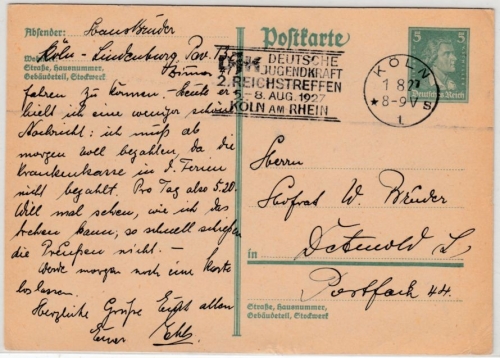 Absender:
Köln - Lindenburg Pav.
Straße, Hausnummer,
Gebäudeteil, Stockwerk
fahren zu können. Heute
hielt ich eine weniger schöne
Nachricht: ich muß ab
morgen voll bezahlen, da die
Krankenkasse in d. Ferien
nicht bezahlt. Pro Tag also 5.20.
Will mal sehen, wie ich das
drehen kann; so schnell schießen
die Preußen nicht. -
Werde morgen noch eine Karte
loslassen.
Herzliche Grüße Euch allen
Euer
Postkarte
DEUTSCHE
JUGENDKRAFT
2. REICHSTREFFEN
5-8. AUG. 1927
KÖLN AM RHEIN
KÖLN
1 8 27
* 8-9 V S
1
5 5
Deutsches Reich
Herrn
Hofrat W.
in Detmold L
Postfach 44.
Straße, Hausnummer,
Gebäudeteil, Stockwerk